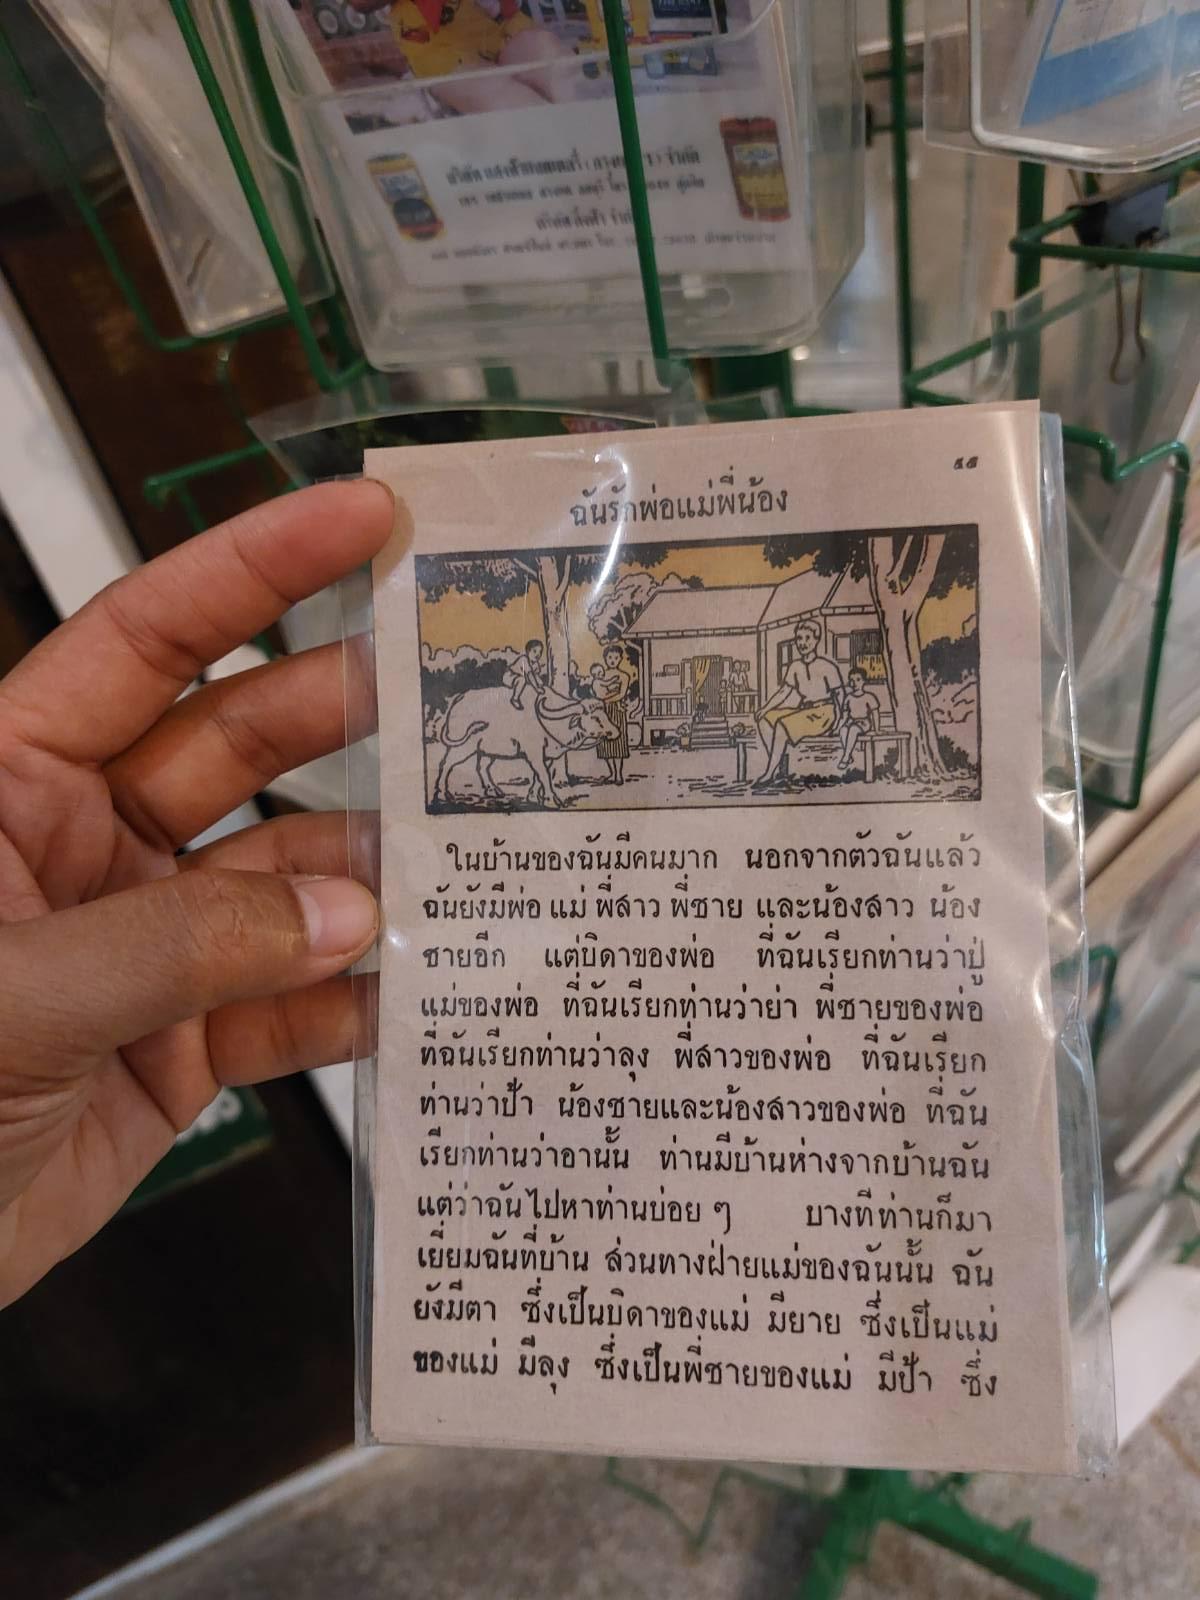 จำกัด
๕๕
ฉันรักพ่อแม่พี่น้อง
ในบ้านของฉันมีคนมาก นอกจากตัวฉันแล้ว
ฉันยังมีพ่อ แม่ พี่สาว พี่ชาย และน้องสาว น้อง
ชายอีก แต่บิดาของพ่อ ที่ฉันเรียกท่านว่าปู่
แม่ของพ่อ ที่ฉันเรียกท่านว่าย่า พี่ชายของพ่อ
ที่ฉันเรียกท่านว่าลุง พี่สาวของพ่อ ที่ฉันเรียก
ท่านว่าป้า น้องชายและน้องสาวของพ่อ ที่ฉัน
เรียกท่านว่าอานั้น ท่านมีบ้านห่างจากบ้านฉัน
แต่ว่าฉันไปหาท่านบ่อย ๆ บางทีท่านก็มา
เยี่ยมฉันที่บ้าน ส่วนทางฝ่ายแม่ของฉันนั้น ฉัน
ยังมีตา ซึ่งเป็นบิดาของแม่ มียาย ซึ่งเป็นแม่
ของแม่ มีลุง ซึ่งเป็นพี่ชายของแม่ มีป้า ซึ่ง